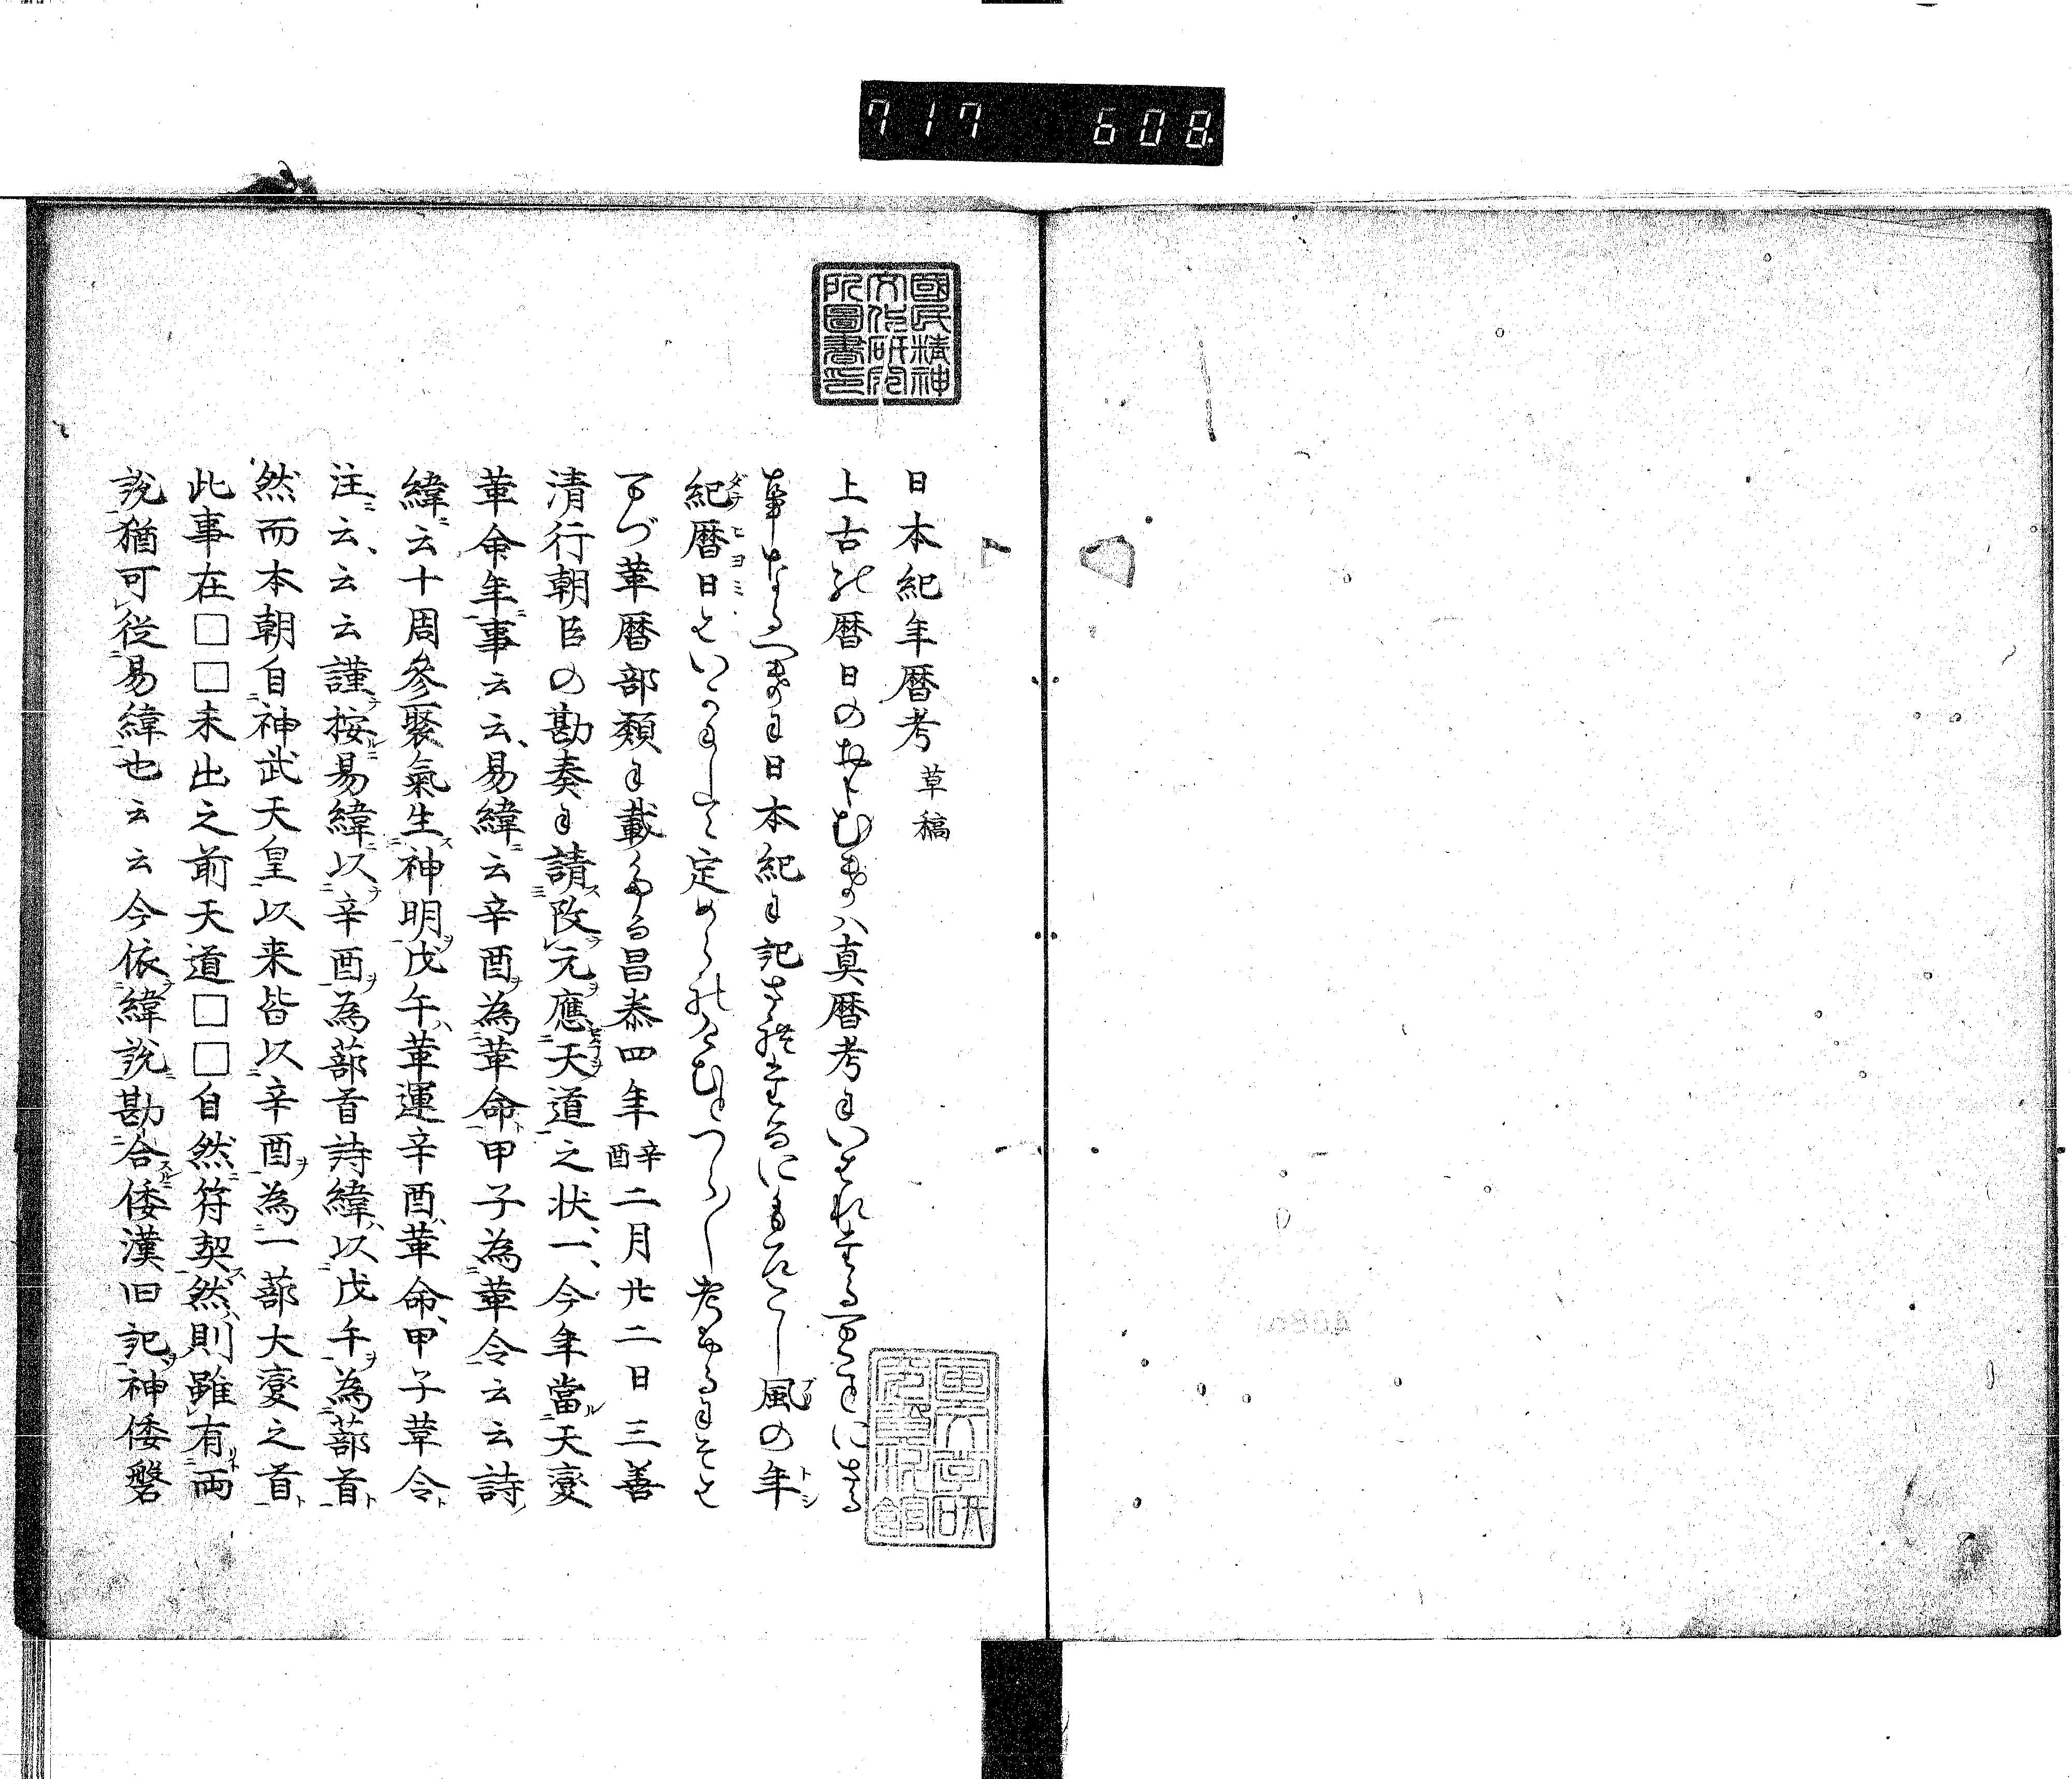 717 608
國民精神
文化研究
所圖書印
日本紀年暦考 草稿
上古の暦日のおもむきハ真暦考にいはれたることくにさる
事なるへきに日本紀に記されたるにもたこし風の年
紀暦日はいかにして定めら れけむとつら〳〵考ふるにそは
まづ革暦部類に載たる昌泰四年辛酉二月廿二日三善
清行朝臣の勘奏に請改元應天道之状一、今年當天變
革命年事云云、易緯云辛酉為革命甲子為革令云云詩
緯云十周參聚氣生神明戊午革運辛酉革命甲子革令
注云、云云謹按易緯以辛酉為蔀首詩緯以戊午為蔀首
然而本朝自神武天皇以来皆以辛酉為一蔀大變之首
此事在□□未出之前天道□□自然符契然則雖有両
説猶可從易緯也云云今依緯説勘合倭漢旧記神倭磐